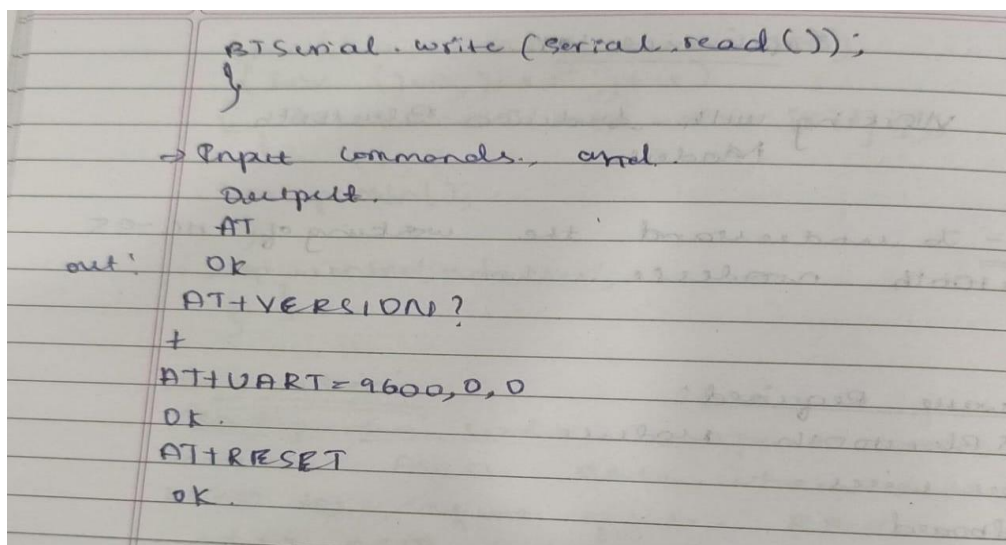 BTSerial.write(serial.read());
}
→ Input commands, and
Output.
AT
out: OK
AT+VERSION?
+
AT+UART=9600,0,0
OK.
AT+RESET
OK.